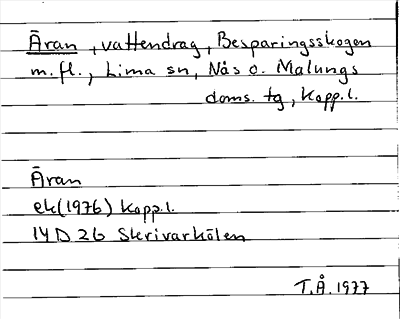 Äran, vattendrag, Besparingsskogen
m.fl., Lima sn, Nås o. Malungs
doms. tg, Kopp.l.
Äran
ek(1976) Kopp.l.
14D 2b Skrivarhölen
T.Å. 1977